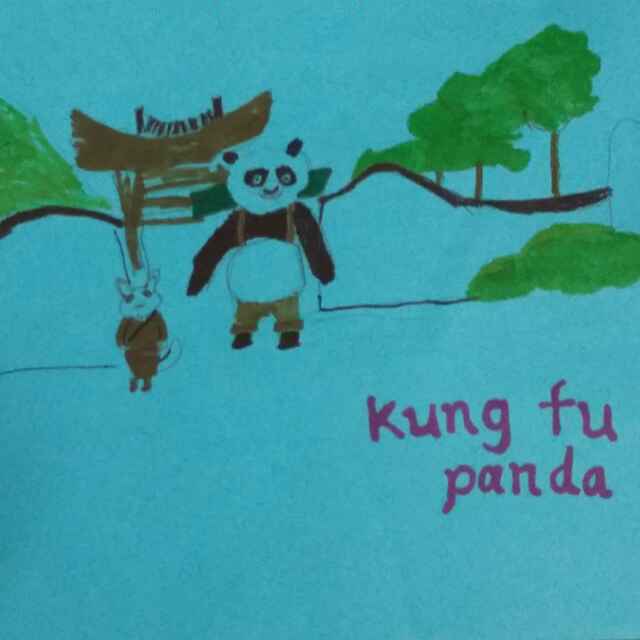 kung fu
panda